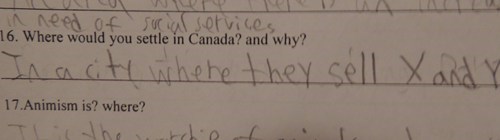 in need of social services
16. Where would you settle in Canada? and why?
In a city where they sell X and Y
17.Animism is? where?
the worship of